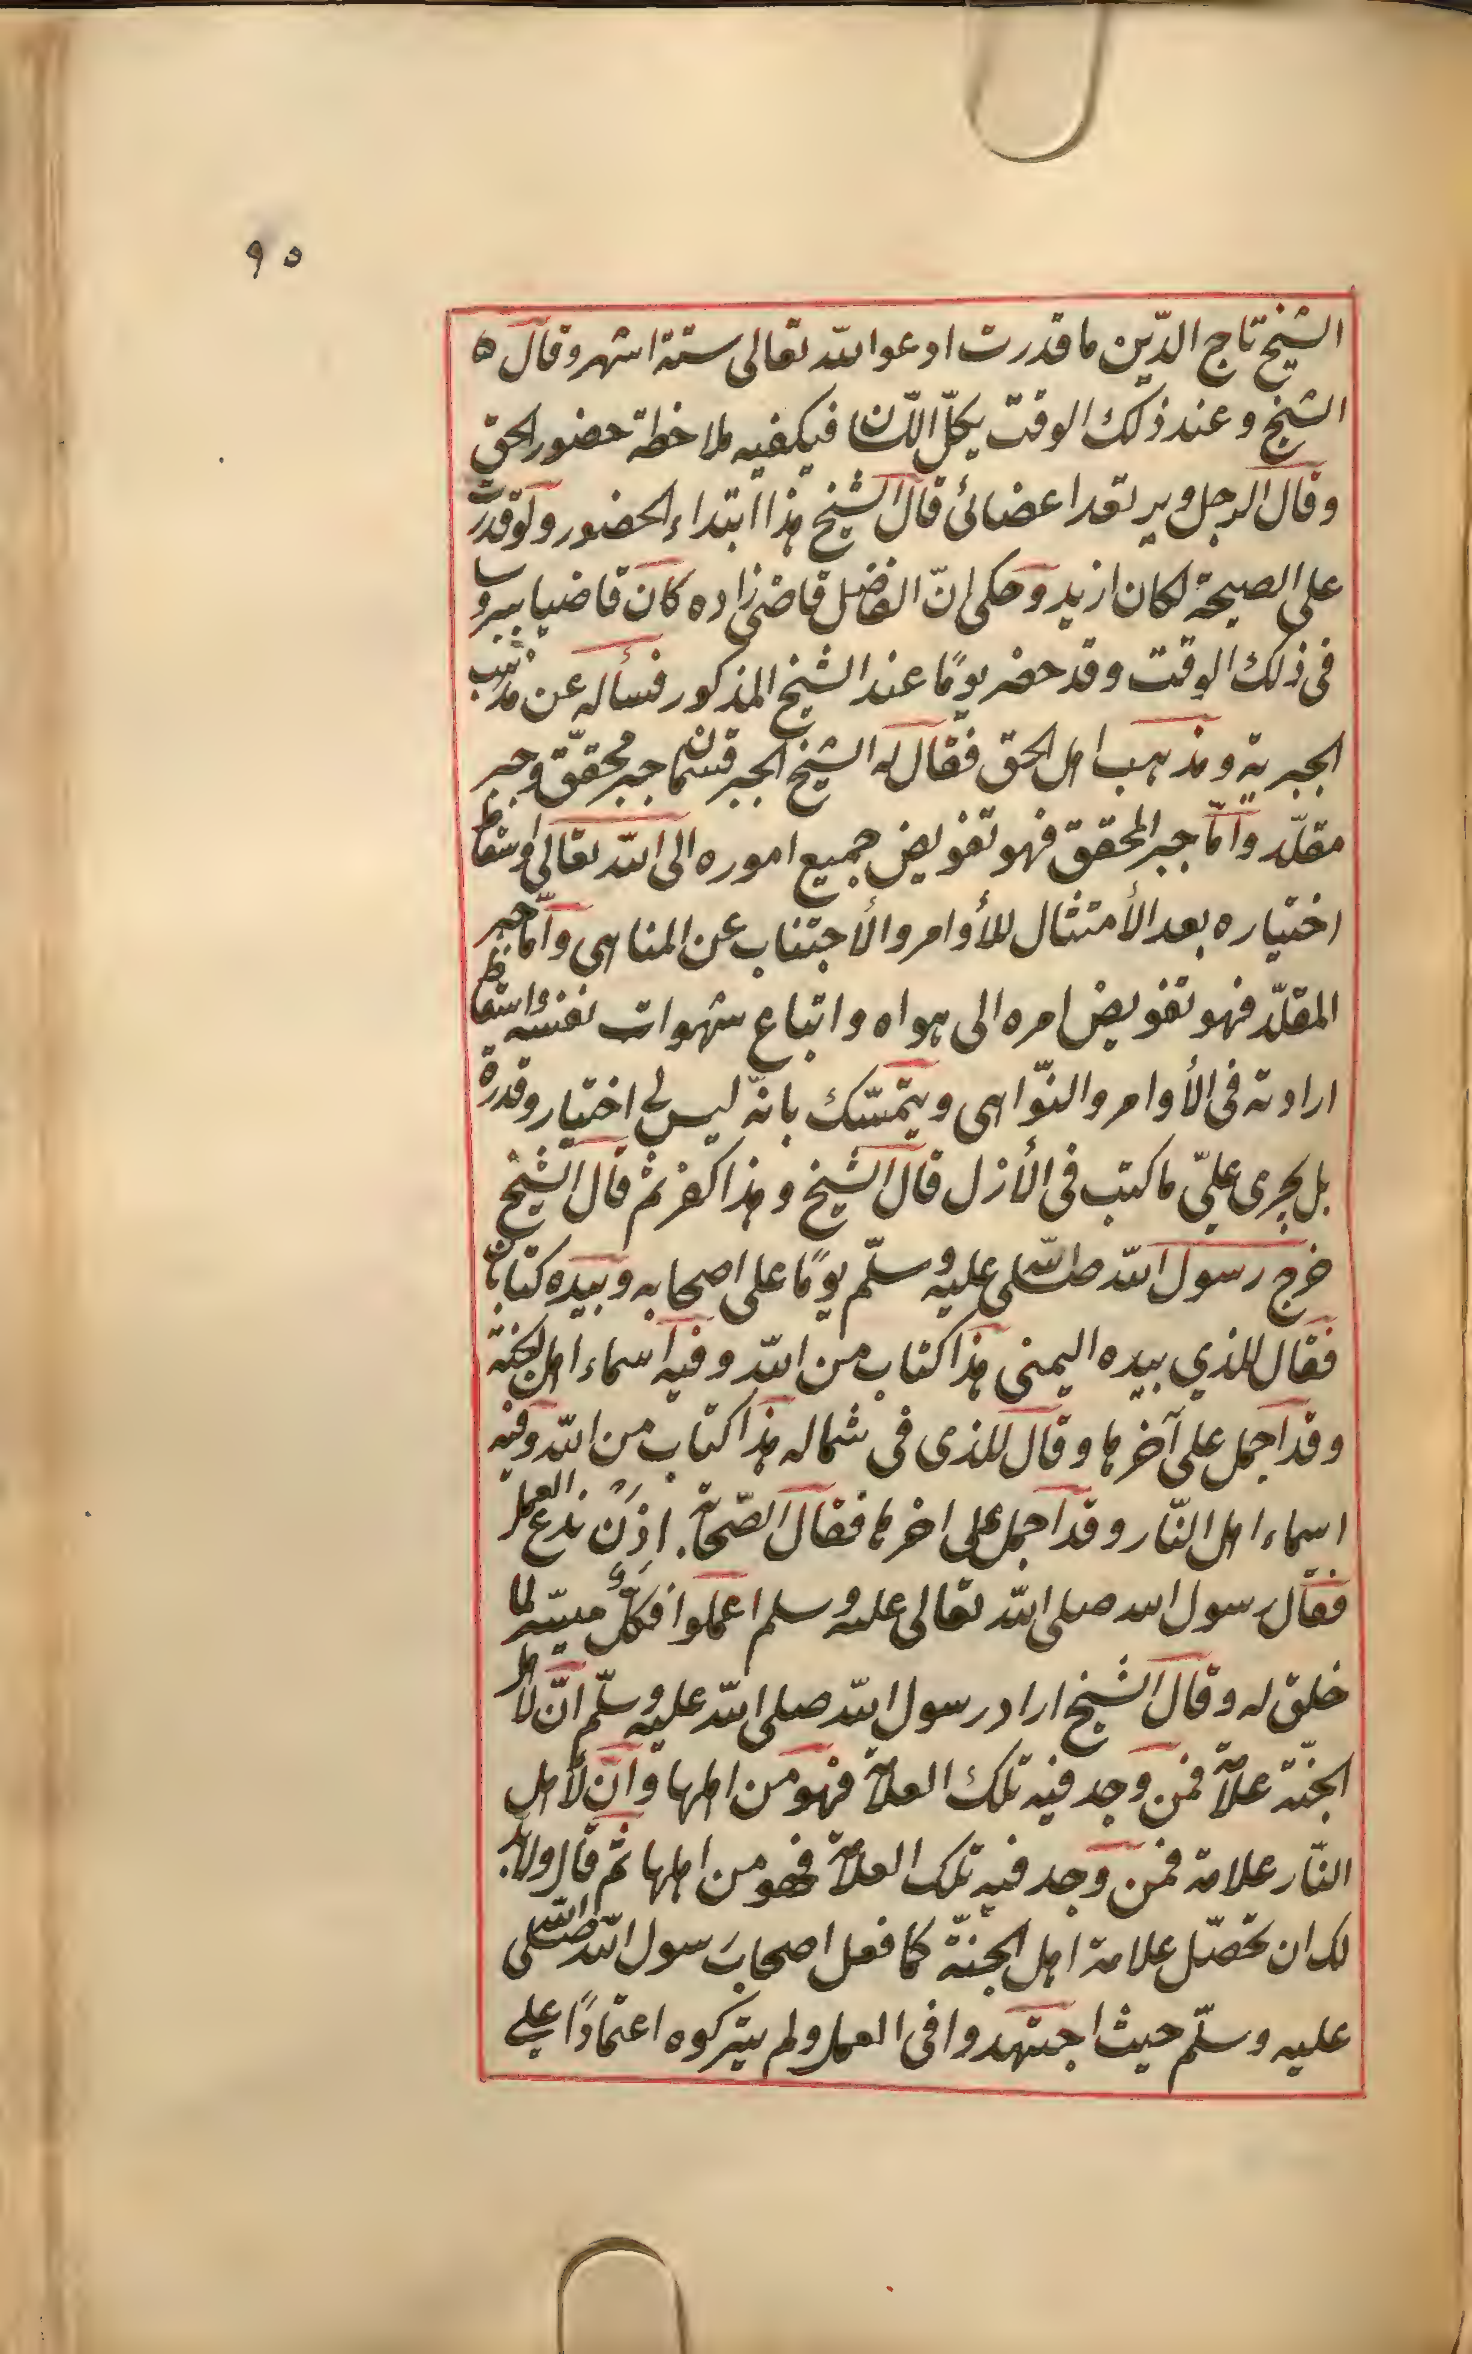 ٩٥
الشيخ تاج الدّين ما قدرت ادعو الله تعالى ستة اشهر وقال ه
الشيخ وعند ذلك الوقت يكلّ اللّسان فيكفيه ملاحظة حضور الحق
وقال الرجل ويرتعد اعضائى قال الشيخ هذا ابتداء الحضور ولو قدرت
على الصيحة لكان ازيد وحكى انّ الفاضل قاضى زاده كان قاضيا ببروسا
فى ذلك الوقت وقد حضر يومًا عند الشيخ المذكور فسأله عن مذهب
الجبرية ومذهب اهل الحق فقال له الشيخ الجبر قسمان جبر محقّق وجبر
مقلّد وامّا جبر المحقق فهو تفويض جميع اموره الى الله تعالى واسقاط
اختياره بعد الأمتثال للأوامر والأجتناب عن المناهى وامّا جبر
المقلّد فهو تفويض امره الى هواه واتباع شهوات نفسه واسقاط
ارادته فى الأوامر والنّواهى ويتمسّك بانّه ليس لى اختيار وقدرة
بل يجرى علىّ ما كتب فى الأزل قال الشيخ وهذا كفر ثم قال الشيخ
خرج رسول الله صلى الله عليه وسلّم يومًا على اصحابه وبيده كتابان
فقال للذي بيده اليمنى هذا كتاب من الله وفيه اسماء اهل الجنة
وقد اجمل على آخرها وقال للذى فى شماله هذا كتاب من الله وفيه
اسماء اهل النّار وقد اجمل على اخرها فقال الصّحابة اذن ندع العمل
فقال رسول الله صلى الله تعالى عليه وسلم اعملوا فكلٌّ ميسّر لما
خلق له وقال الشيخ اراد رسول الله صلى الله عليه وسلّم انّ لأهل
الجنّة علامة فمن وجد فيه تلك العلامة فهو من اهلها وانّ لأهل
النّار علامة فمن وجد فيه تلك العلامة فهو من اهلها ثم قال ولابد
لك ان تحصّل علامة اهل الجنّة كما فعل اصحاب رسول الله صلى الله
عليه وسلّم حيث اجتهدوا فى العمل ولم يتركوه اعتمادًا على